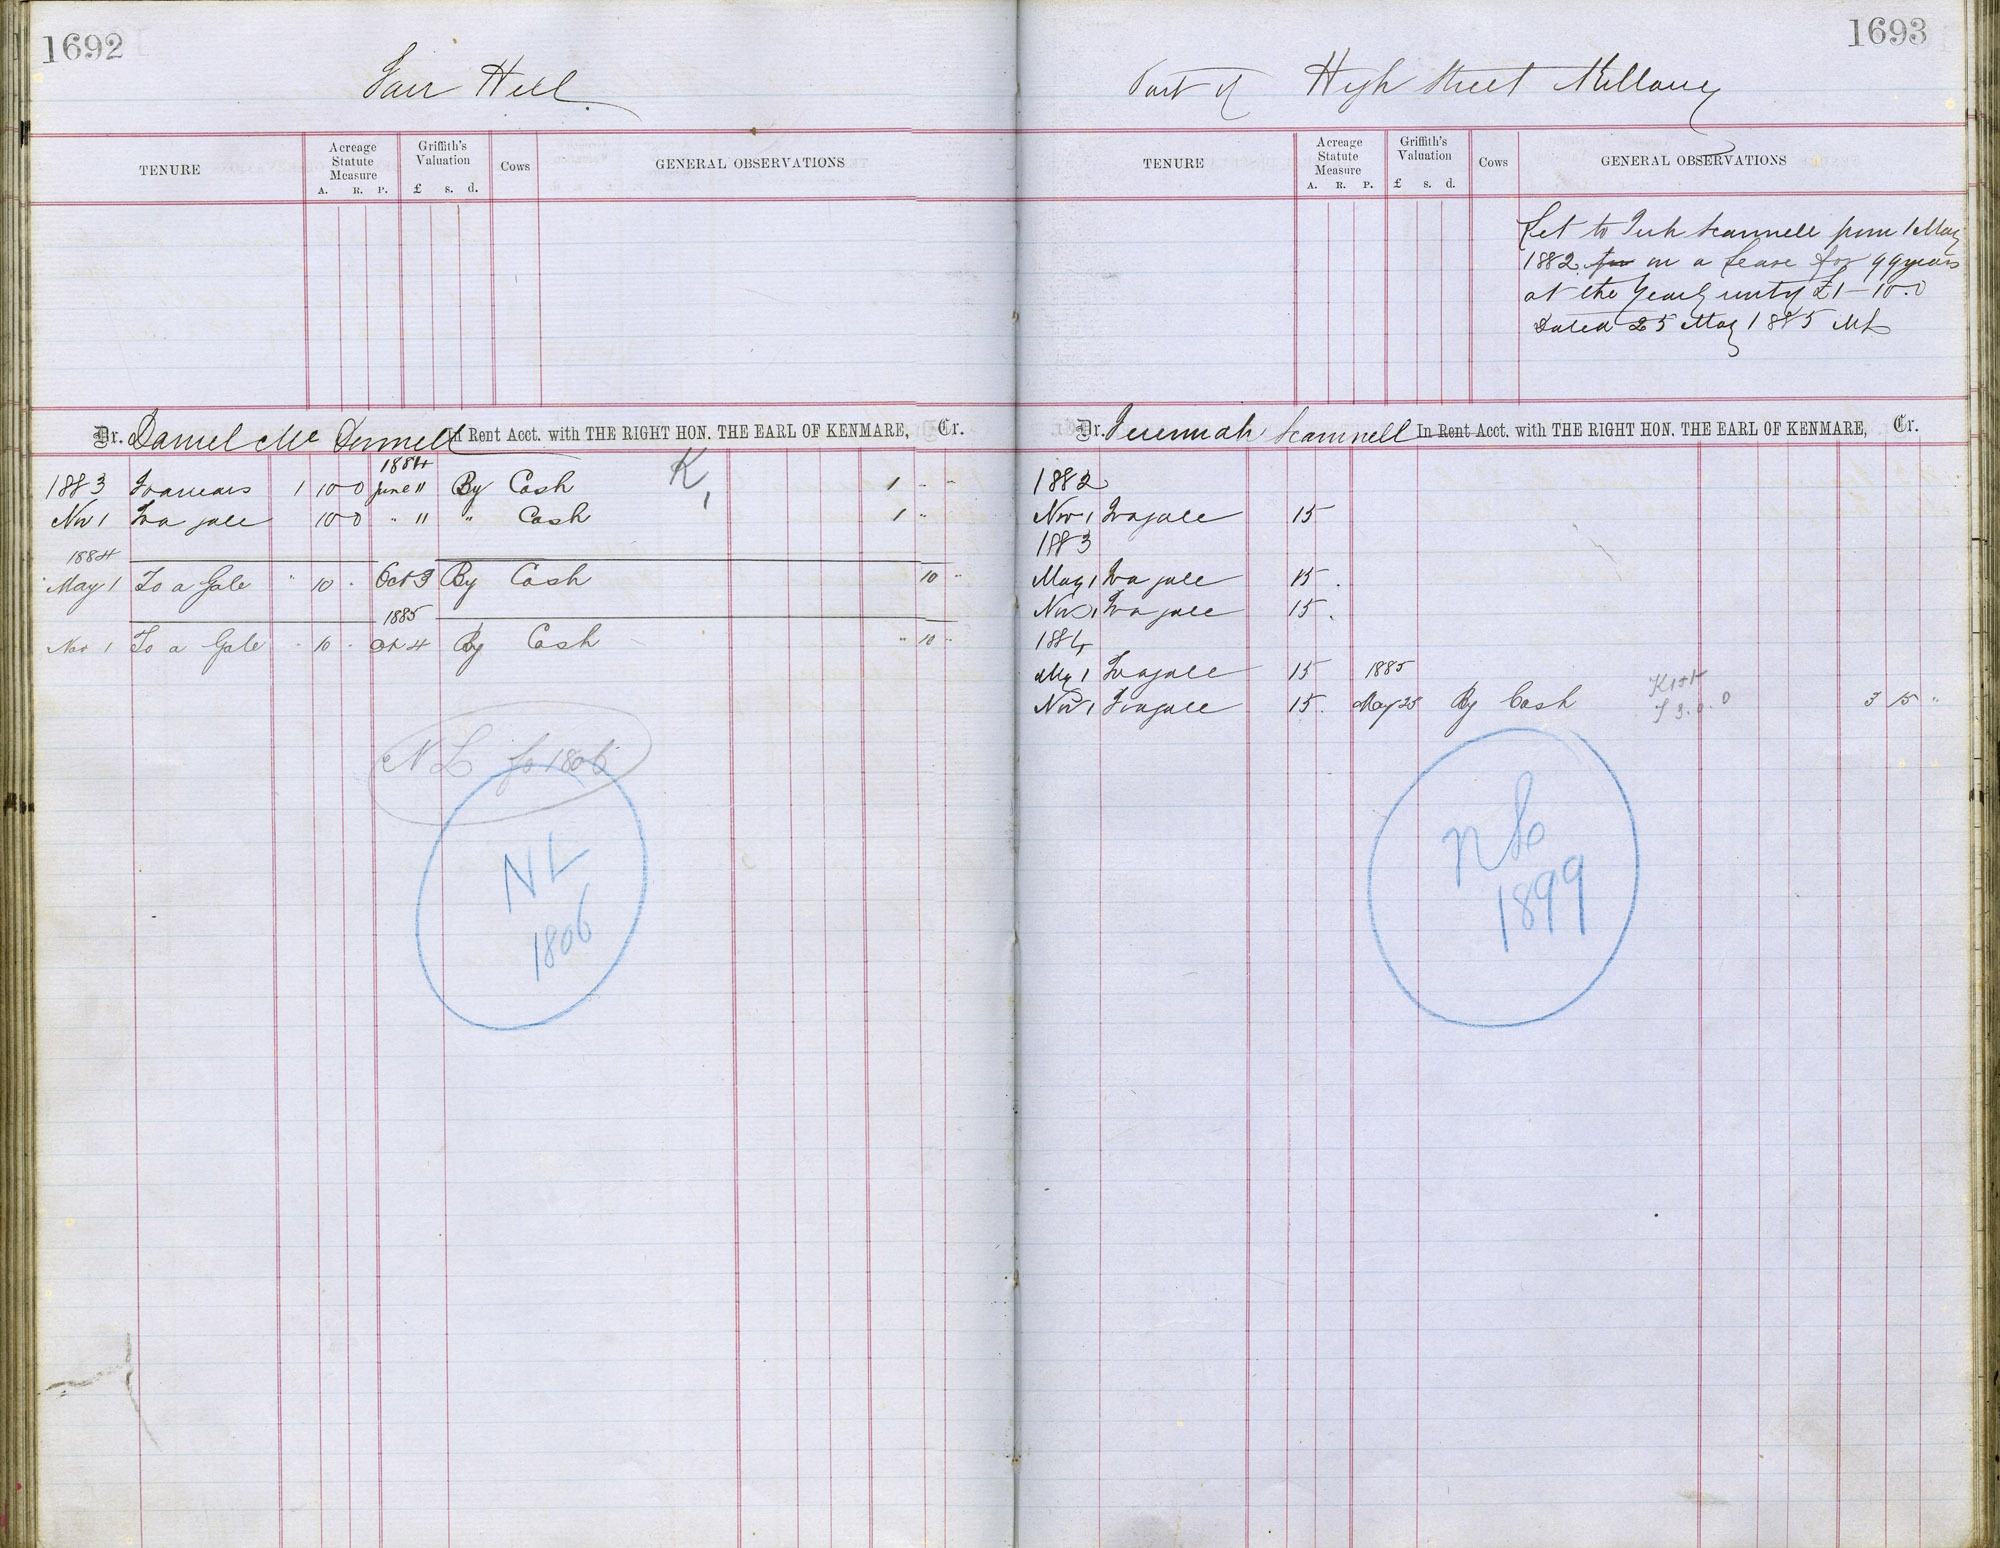 1692
Fair Hill
TENURE
Acreage Statute Measure
A. R. P.
Griffith's Valuation
£ s. d.
Cows
GENERAL OBSERVATIONS
Dr. Daniel Mc Donnell In Rent Acct. with THE RIGHT HON. THE EARL OF KENMARE, Cr.
1884
1883 To arrears 1 10 0 June 11 By Cash K 1 " "
Nov 1 To a gale 10 0 " 11 " Cash 1 "
1884
May 1 To a Gale " 10 . Oct 3 By Cash 10 "
1885
Nov 1 To a Gale . 10 . 4 By Cash " 10 "
NL fo 1806
NL
1806
1693
Part of High Street Killarney
TENURE
Acreage Statute Measure
A. R. P.
Griffith's Valuation
£ s. d.
Cows
GENERAL OBSERVATIONS
Let to Jerh Scannell from 1 May
1882 for on a lease for 99 years
at the yearly rent of £1-10.0
Dated 25 May 1885
Dr. Jeremiah Scannell In Rent Acct. with THE RIGHT HON. THE EARL OF KENMARE, Cr.
1882
Nov 1 To a gale 15
1883
May 1 To a gale 15 .
Nov 1 To a gale 15 .
1884
May 1 To a gale 15 1885
Nov 1 To a gale 15 . May 25 By Cash 3 15 "
NL
1899